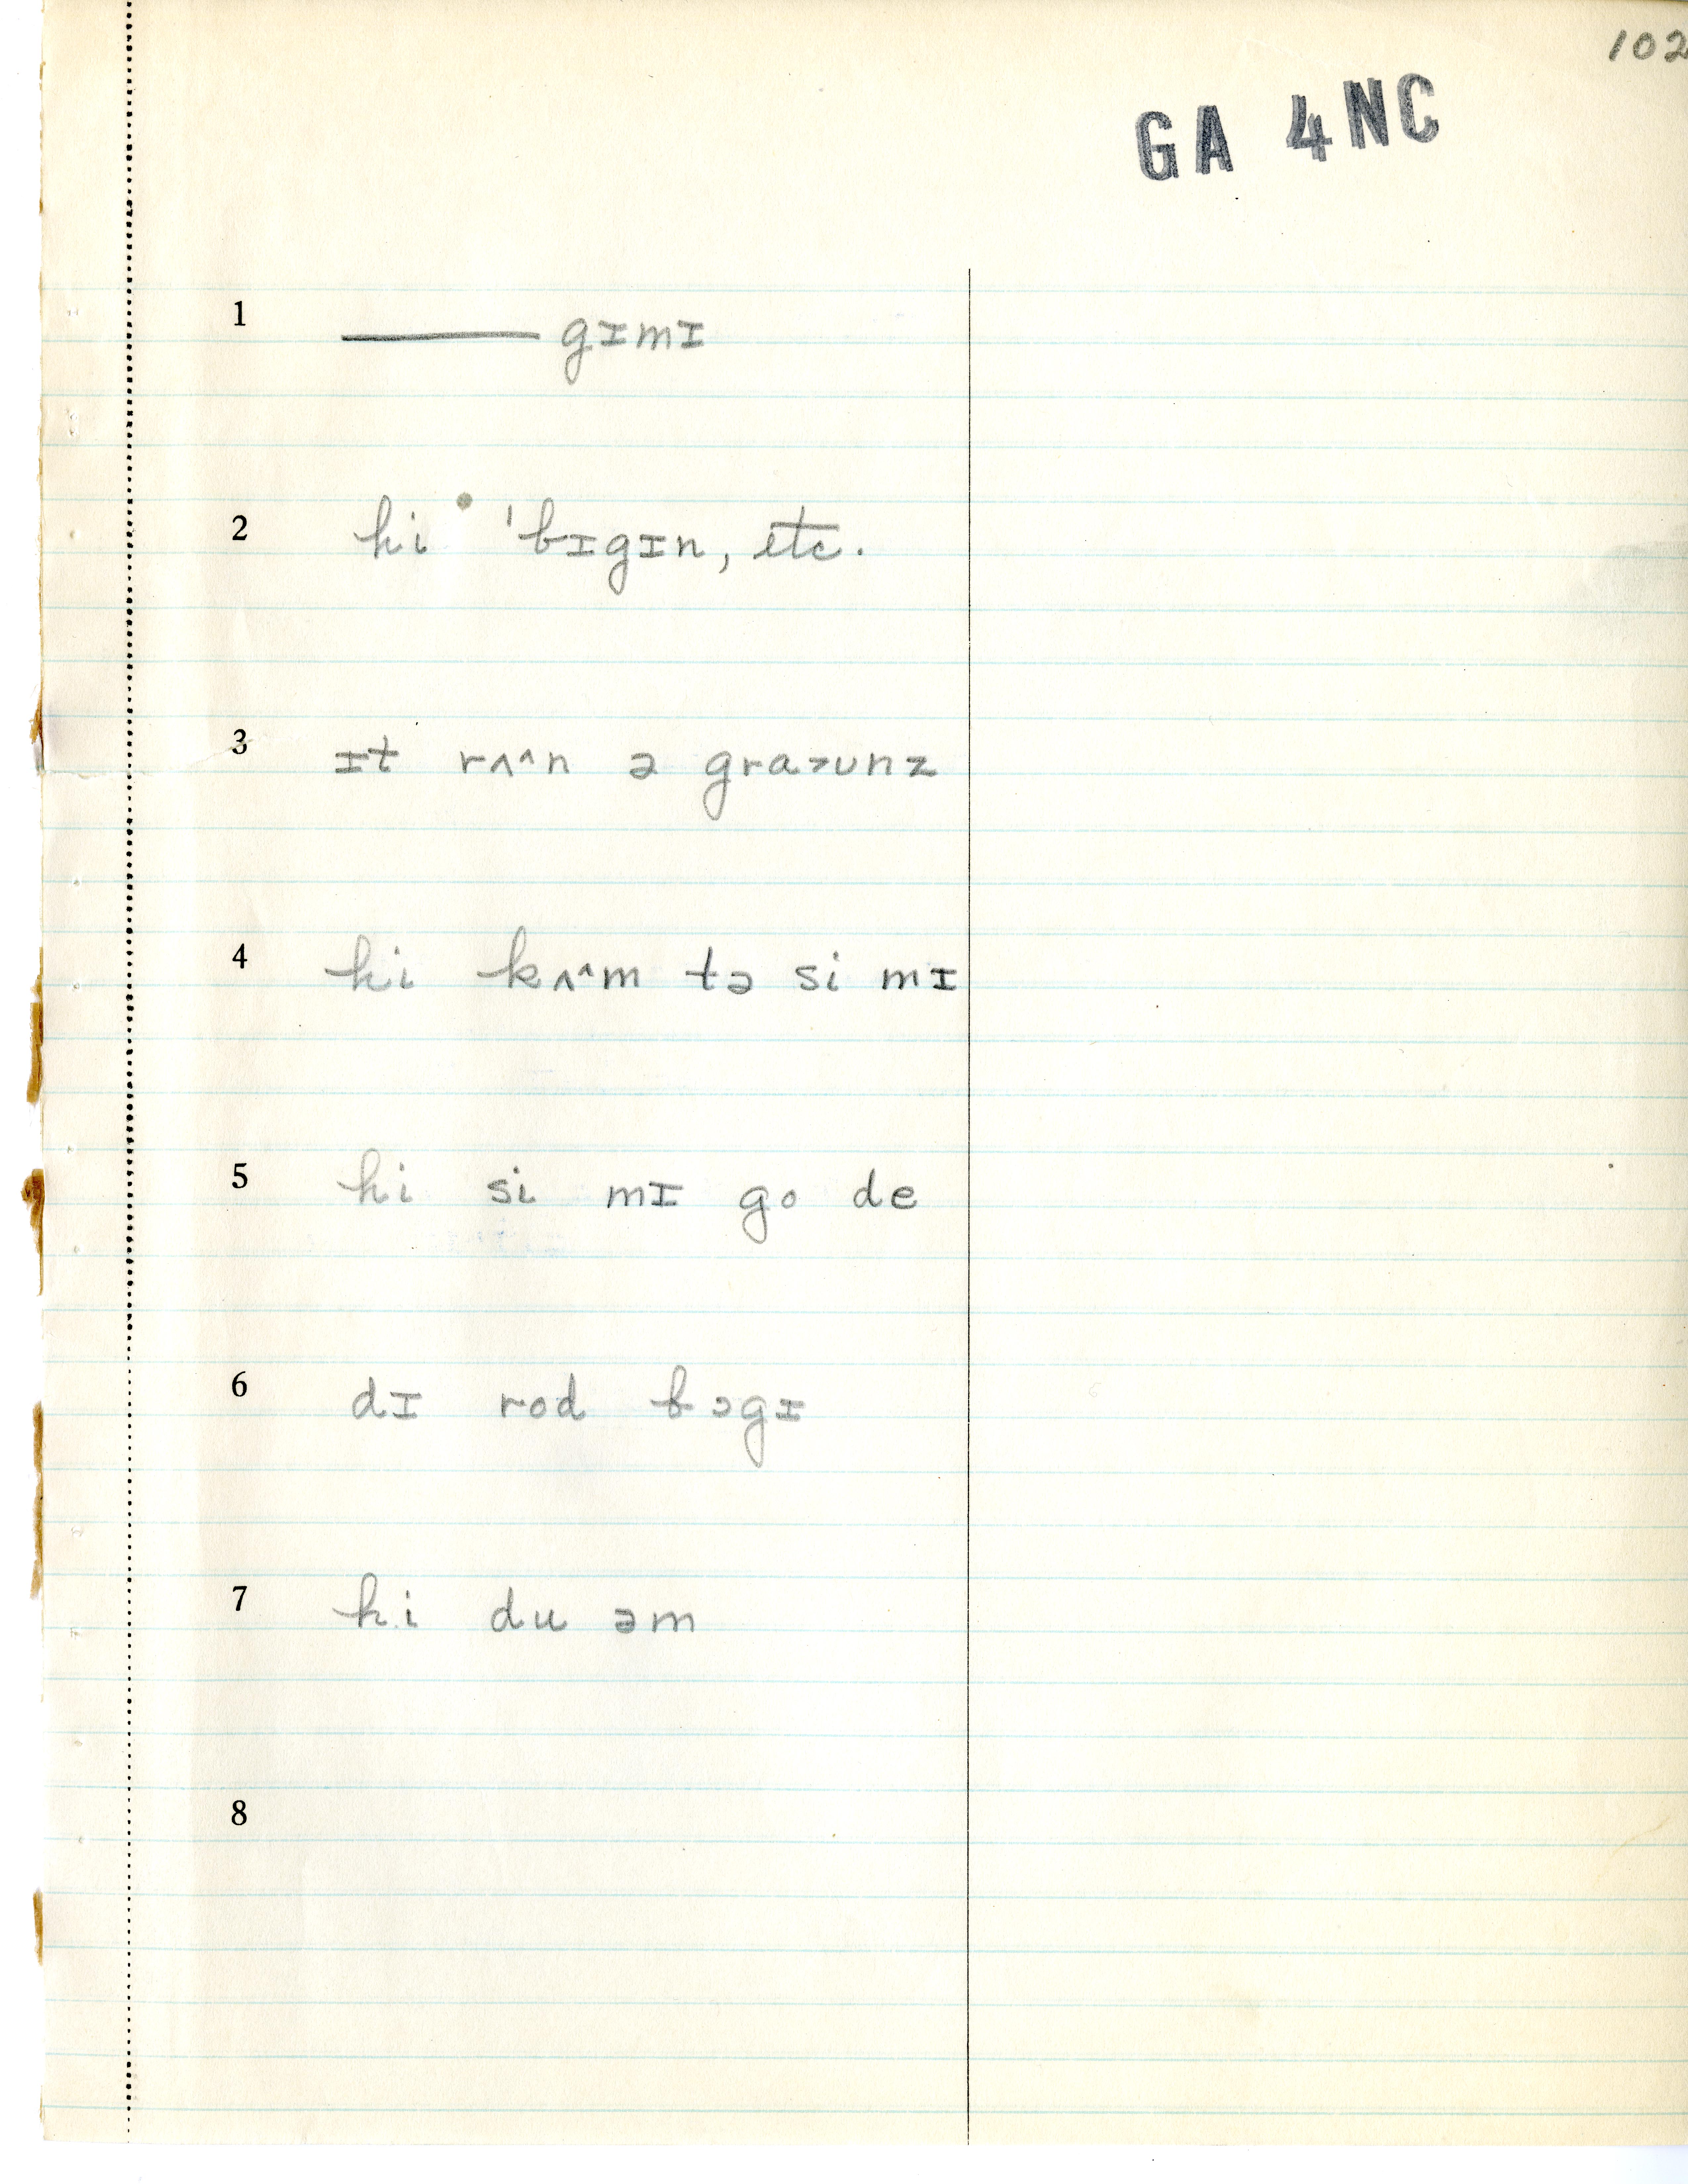 102
GA 4NC
1 ——— gɪmɪ
2 hi 'bɪgɪn, etc.
3 ɪt rʌ^n ə gra>ʊnz
4 hi kʌ^m tə si mɪ
5 hi si mɪ go de
6 dɪ rod bɔgɪ
7 hi du əm
8